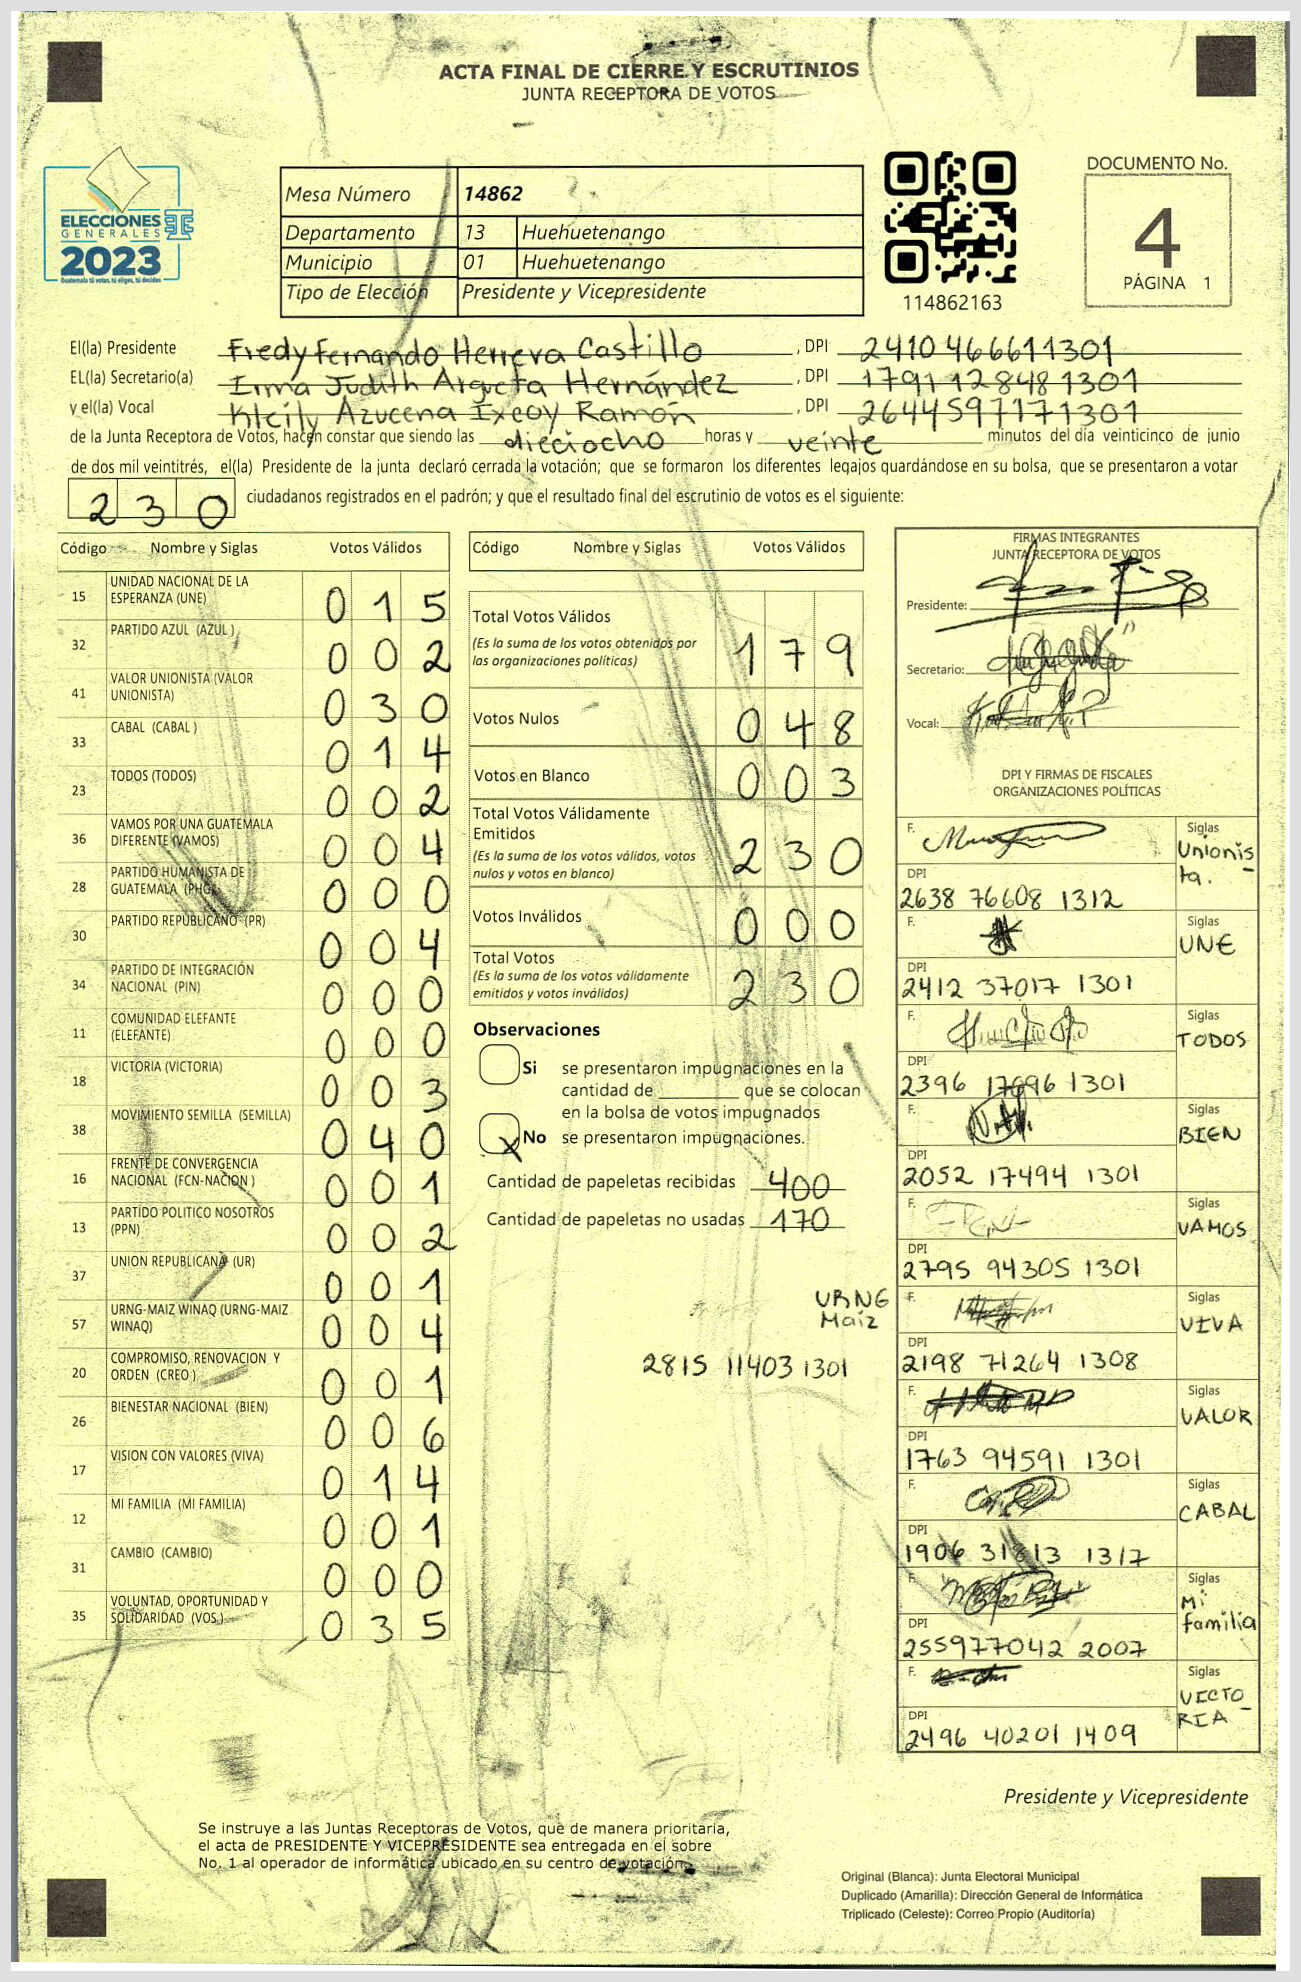 ACTA FINAL DE CIERRE Y ESCRUTINIOS
JUNTA RECEPTORA DE VOTOS
ELECCIONES
GENERALES
2023
Guatemala tú votas, tú eliges, tú decides
Mesa Número 14862
Departamento 13 Huehuetenango
Municipio 01 Huehuetenango
Tipo de Elección Presidente y Vicepresidente
114862163
DOCUMENTO No.
4
PÁGINA 1
El(la) Presidente Fredy Fernando Herrera Castillo , DPI 2410466611301
EL(la) Secretario(a) Irma Judith Argueta Hernández , DPI 1791128481301
y el(la) Vocal Kleily Azucena Ixcoy Ramón , DPI 2644597171301
de la Junta Receptora de Votos, hacen constar que siendo las dieciocho horas y veinte minutos del día veinticinco de junio
de dos mil veintitrés, el(la) Presidente de la junta declaró cerrada la votación; que se formaron los diferentes legajos quardándose en su bolsa, que se presentaron a votar
230 ciudadanos registrados en el padrón; y que el resultado final del escrutinio de votos es el siguiente:
Código Nombre y Siglas Votos Válidos
15 UNIDAD NACIONAL DE LA ESPERANZA (UNE) 015
32 PARTIDO AZUL (AZUL ) 002
41 VALOR UNIONISTA (VALOR UNIONISTA) 030
33 CABAL (CABAL ) 014
23 TODOS (TODOS) 002
36 VAMOS POR UNA GUATEMALA DIFERENTE (VAMOS) 004
28 PARTIDO HUMANISTA DE GUATEMALA (PHG) 000
30 PARTIDO REPUBLICANO (PR) 004
34 PARTIDO DE INTEGRACIÓN NACIONAL (PIN) 000
11 COMUNIDAD ELEFANTE (ELEFANTE) 000
18 VICTORIA (VICTORIA) 003
38 MOVIMIENTO SEMILLA (SEMILLA) 040
16 FRENTE DE CONVERGENCIA NACIONAL (FCN-NACION ) 001
13 PARTIDO POLITICO NOSOTROS (PPN) 002
37 UNION REPUBLICANA (UR) 001
57 URNG-MAIZ WINAQ (URNG-MAIZ WINAQ) 004
20 COMPROMISO, RENOVACION Y ORDEN (CREO ) 001
26 BIENESTAR NACIONAL (BIEN) 006
17 VISION CON VALORES (VIVA) 014
12 MI FAMILIA (MI FAMILIA) 001
31 CAMBIO (CAMBIO) 000
35 VOLUNTAD, OPORTUNIDAD Y SOLIDARIDAD (VOS ) 035
Código Nombre y Siglas Votos Válidos
Total Votos Válidos 179
(Es la suma de los votos obtenidos por
las organizaciones políticas)
Votos Nulos 048
Votos en Blanco 003
Total Votos Válidamente
Emitidos 230
(Es la suma de los votos válidos, votos
nulos y votos en blanco)
Votos Inválidos 000
Total Votos 230
(Es la suma de los votos válidamente
emitidos y votos inválidos)
Observaciones
Si se presentaron impugnaciones en la
cantidad de ________ que se colocan
en la bolsa de votos impugnados
X No se presentaron impugnaciones.
Cantidad de papeletas recibidas 400
Cantidad de papeletas no usadas 170
URNG
Maíz
2815 11403 1301
FIRMAS INTEGRANTES
JUNTA RECEPTORA DE VOTOS
Presidente:
Secretario:
Vocal:
DPI Y FIRMAS DE FISCALES
ORGANIZACIONES POLÍTICAS
F. Siglas
Unionis-
ta.
DPI
2638 76608 1312
F. Siglas
UNE
DPI
2412 37017 1301
F. Siglas
TODOS
DPI
2396 17696 1301
F. Siglas
BIEN
DPI
2052 17494 1301
F. Siglas
VAMOS
DPI
2795 94305 1301
F. Siglas
VIVA
DPI
2198 71264 1308
F. Siglas
VALOR
DPI
1763 94591 1301
F. Siglas
CABAL
DPI
1906 31813 1317
F. Siglas
Mi
familia
DPI
255977042 2007
F. Siglas
VICTO-
RIA
DPI
2496 40201 1409
Presidente y Vicepresidente
Se instruye a las Juntas Receptoras de Votos, que de manera prioritaria,
el acta de PRESIDENTE Y VICEPRESIDENTE sea entregada en el sobre
No. 1 al operador de informática ubicado en su centro de votación.
Original (Blanca): Junta Electoral Municipal
Duplicado (Amarilla): Dirección General de Informática
Triplicado (Celeste): Correo Propio (Auditoría)